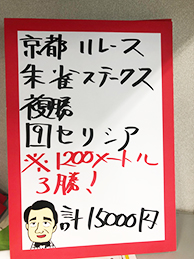 京都11レース
朱雀ステークス
複勝
9セリシア
※1200メートル
3勝!
計15000円